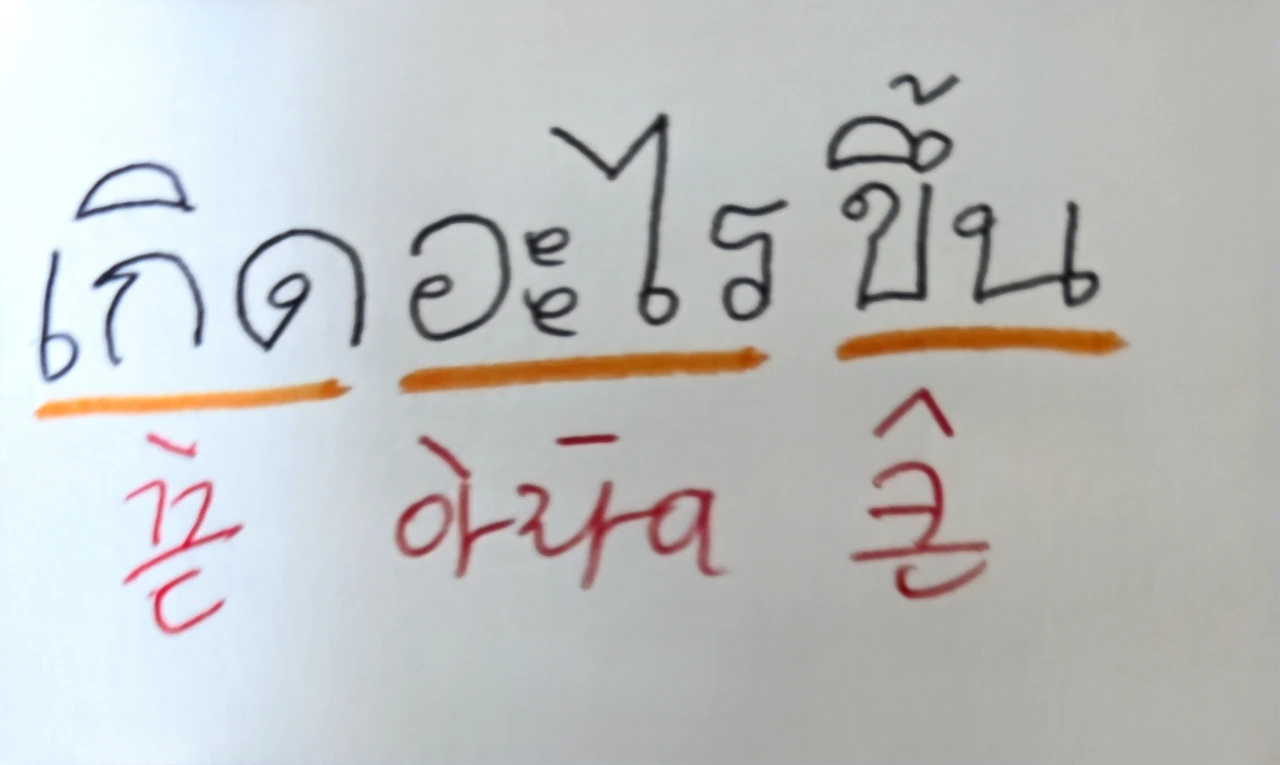 เกิด อะไร ขึ้น
끋 아라이 큰